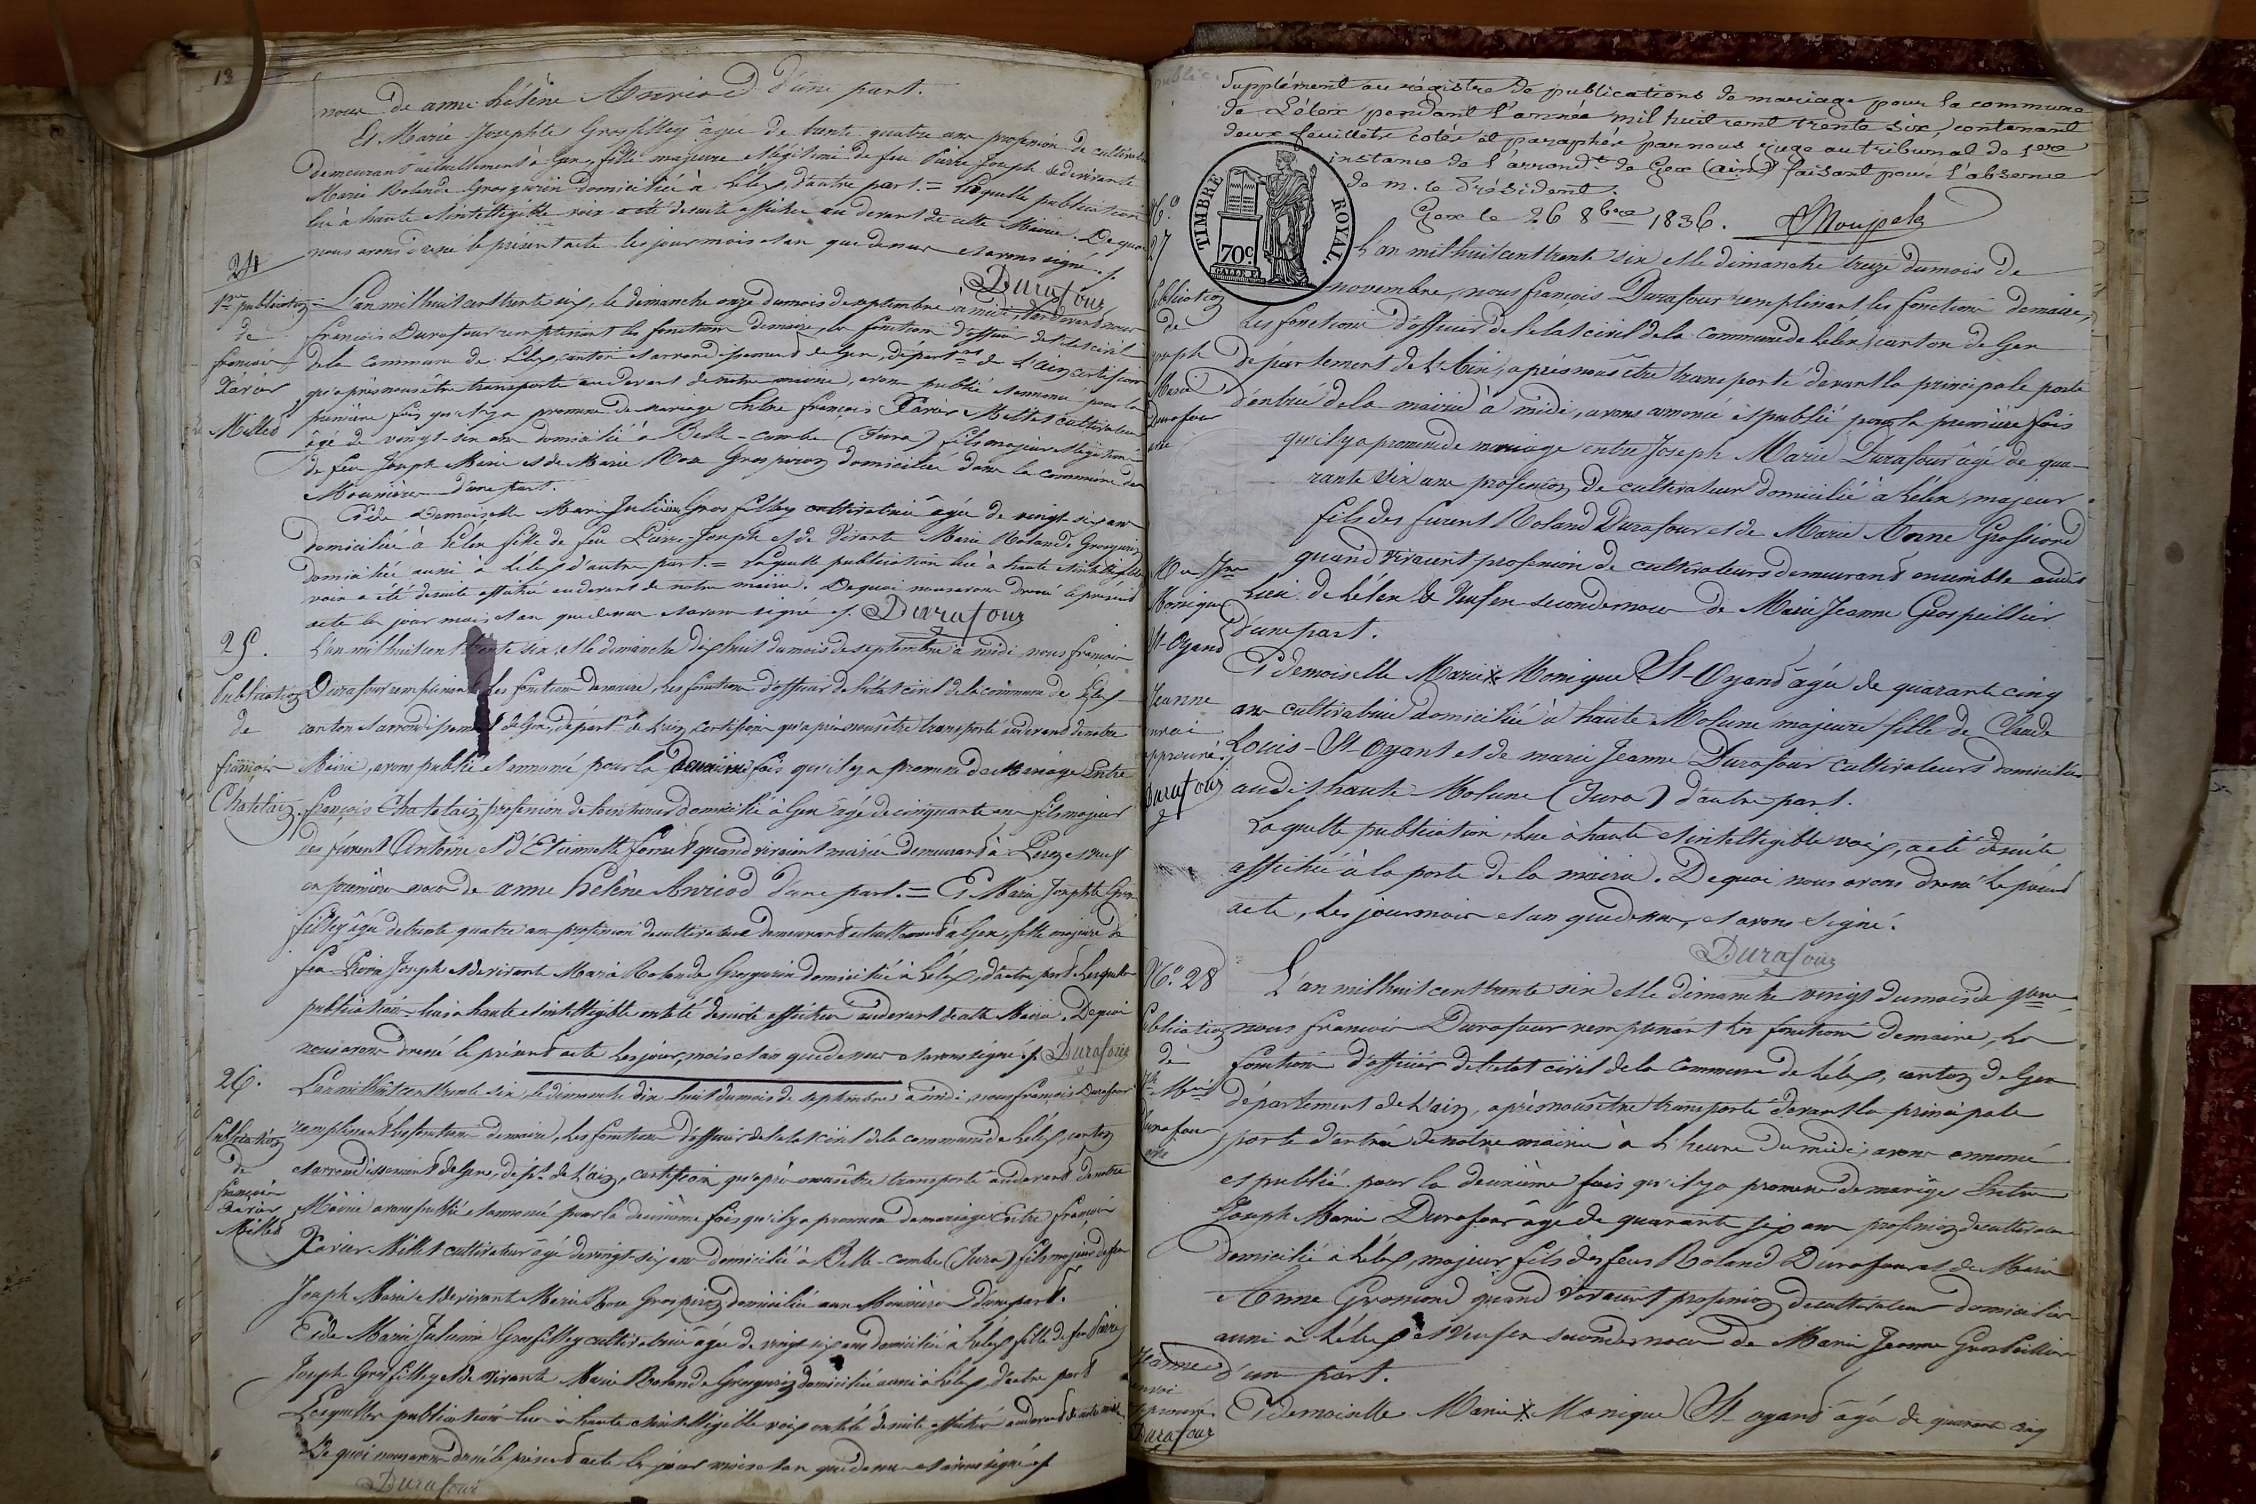 13
noces de anne hélène Anriod d'une part.
Et Marie Josephte Grosfilley âgée de trente quatre ans profession de cultivatrice
demeurant actuellement à Gex, fille majeure et légitime de feu Pierre Joseph et de vivante
Marie Rolande Grosgurin domiciliée à Lélex, d'autre part. = Laquelle publication
lue à haute et intelligible voix a été de suite affichée au devant de cette Mairie. De quoi
nous avons dressé le présent acte les jour mois et an que dessus et avons signé ./.
Durafour
24
1re publication
de
françois
Xavier
Millet
L'an mil huit cent trente six, le dimanche onze du mois de septembre à midi, par devant nous
françois Durafour remplissant les fonctions de maire, les fonctions d'officier de l'état civil
de la commune de Lélex, canton et arrondissement de Gex, départ.nt de L'ain, certifions
qu'après nous être transporté au devant de notre mairie, avons publié et annoncé pour la
première fois qu'il y a promesse de mariage Entre françois Xavier Millet cultivateur
âgé de vingt-six ans domicilié à Belle-combe (Jura) fils majeur et légitime
de feu Joseph Marie et de Marie Rose Grospiron domiciliée dans la commune des
Mounières d'une part.
Et de Demoiselle Marie Julienne Gros filley cultivatrice âgée de vingt-six ans
domiciliée à Lélex fille de feu Pierre-Joseph et de Vivante Marie Rolande Grosgurin
domiciliée aussi à Lélex d'autre part. = Laquelle publication lue à haute et intelligible
voix a été de suite affichée au devant de notre mairie. De quoi nous avons dressé le présent
acte les jour mois et an que dessus et avons signé ./. Durafour
25.
Publication
de
françois
Chatelain
L'an mil huit cent trente six et le dimanche dix huit du mois de septembre à midi, nous françois
Durafour remplissant les fonctions de maire, les fonctions d'officier de l'état civil de la commune de Lélex
canton et arrondissement de Gex, départ.nt de L'ain, certifions qu'après nous être transporté au devant de notre
Mairie, avons publié et annoncé pour la deuxième fois qu'il y a promesse de Mariage Entre
françois Chatelain profession de domicilié à Gex âgé de cinquante ans fils majeur
des furent Antoine et d'Etiennette quand vivaient mariés demeurant à et veuf
en première noces de anne hélène Anriod d'une part. = Et Marie Josephte Gros
filley âgée de trente quatre ans profession de cultivatrice demeurant actuellement à Gex, fille majeure de
feu Pierre Joseph et de vivante Marie Rolande Grosgurin domiciliée à Lélex, d'autre part. Lesquelles
publications lues à haute et intelligible ont été de suite affichées au devant de cette Mairie. De quoi
nous avons dressé le présent acte les jour, mois et an que dessus et avons signé ./. Durafour
26.
Publication
de
françois
Xavier
Millet
L'an mil huit cent trente six, le dimanche dix huit du mois de septembre à midi, nous françois Durafour
remplissant les fonctions de maire, les fonctions d'officier de l'état civil de la commune de Lélex, canton
et arrondissement de Gex, dép.t de L'ain, certifions qu'après nous être transporté au devant de notre
Mairie avons publié et annoncé pour la deuxième fois qu'il y a promesse de mariage Entre françois
Xavier Millet cultivateur âgé de vingt-six ans domicilié à Belle-combe (Jura) fils majeur de feu
Joseph Marie et de vivante Marie Rose Grospiron domiciliée aux Mounières d'une part.
Et de Marie Julienne Grosfilley cultivatrice âgée de vingt six ans domiciliée à Lélex fille de feu Pierre
Joseph Grosfilley et de vivante Marie Rolande Grosgurin domiciliée aussi à Lélex d'autre part
Lesquelles publications lues à haute et intelligible voix ont été de suite affichées au devant de cette mairie
De quoi nous avons dressé le présent acte les jour mois et an que dessus et avons signé ./.
Durafour
Supplément au régistre de publications de mariage pour la commune
de Lélex pendant l'année mil huit cent trente six, contenant
deux feuillets cotés et paraphés par nous juge au tribunal de 1ere
instance de l'arrond.t de Gex (ain) faisant pour l'absence
de m. le Président.
Gex le 26 8bre 1836.
TIMBRE ROYAL.
70c.
N.o
27
publication
de
joseph
Marie
Durafour
L'an mil huit cent trente six et le dimanche treize du mois de
novembre, nous françois Durafour remplissant les fonctions de maire,
les fonctions d'officier de l'état civil de la commune de Lélex, canton de Gex
département de l'Ain, après nous être transporté devant la principale porte
d'entrée de la mairie à midi, avons annoncé et publié pour la première fois
qu'il y a promesse de mariage entre Joseph Marie Durafour âgé de qua-
rante six ans profession de cultivateur domicilié à Lélex, majeur
fils des furent Roland Durafour et de Marie Anne Grossiord
quand vivaient profession de cultivateurs demeurant ensemble audit
Lieu de Lélex & Veuf en seconde noces de Marie Jeanne Grospellier
d'une part.
Monique
St-Oyand
Et demoiselle Marie X Monique St-Oyand âgée de quarante cinq
ans cultivatrice domiciliée à haute Molune majeure fille de Claude
Louis-St Oyant et de marie Jeanne Durafour cultivateurs domiciliés
audit haute Molune (Jura) d'autre part.
Jeanne
envoi
approuvé
Durafour
Laquelle publication, lue à haute et intelligible voix, a été de suite
affichée à la porte de la mairie. De quoi nous avons dressé le présent
acte, les jour mois et an que dessus, et avons signé.
Durafour
No. 28
Publication
de
Durafour
L'an mil huit cent trente six et le dimanche vingt du mois de 9bre
nous françois Durafour remplissant les fonctions de maire, les
fonctions d'officier de l'état civil de la Commune de Lélex, canton de Gex
département de L'ain, après nous être transporté devant la principale
porte d'entrée de notre mairie à L'heure du midi, avons annoncé
et publié pour la deuxième fois qu'il y a promesse de mariage Entre
Joseph Marie Durafour âgé de quarante six ans profession de cultivateur
domicilié à Lélex, majeur fils des feus Roland Durafour et de Marie
Anne Grossiord quand vivaient profession de cultivateurs domiciliés
aussi à Lélex et Veuf en seconde noces de Marie Jeanne Grospellier
d'une part.
Jeanne
envoi
approuvé
Durafour
Et demoiselle Marie X Monique St-oyand âgée de quarante cinq